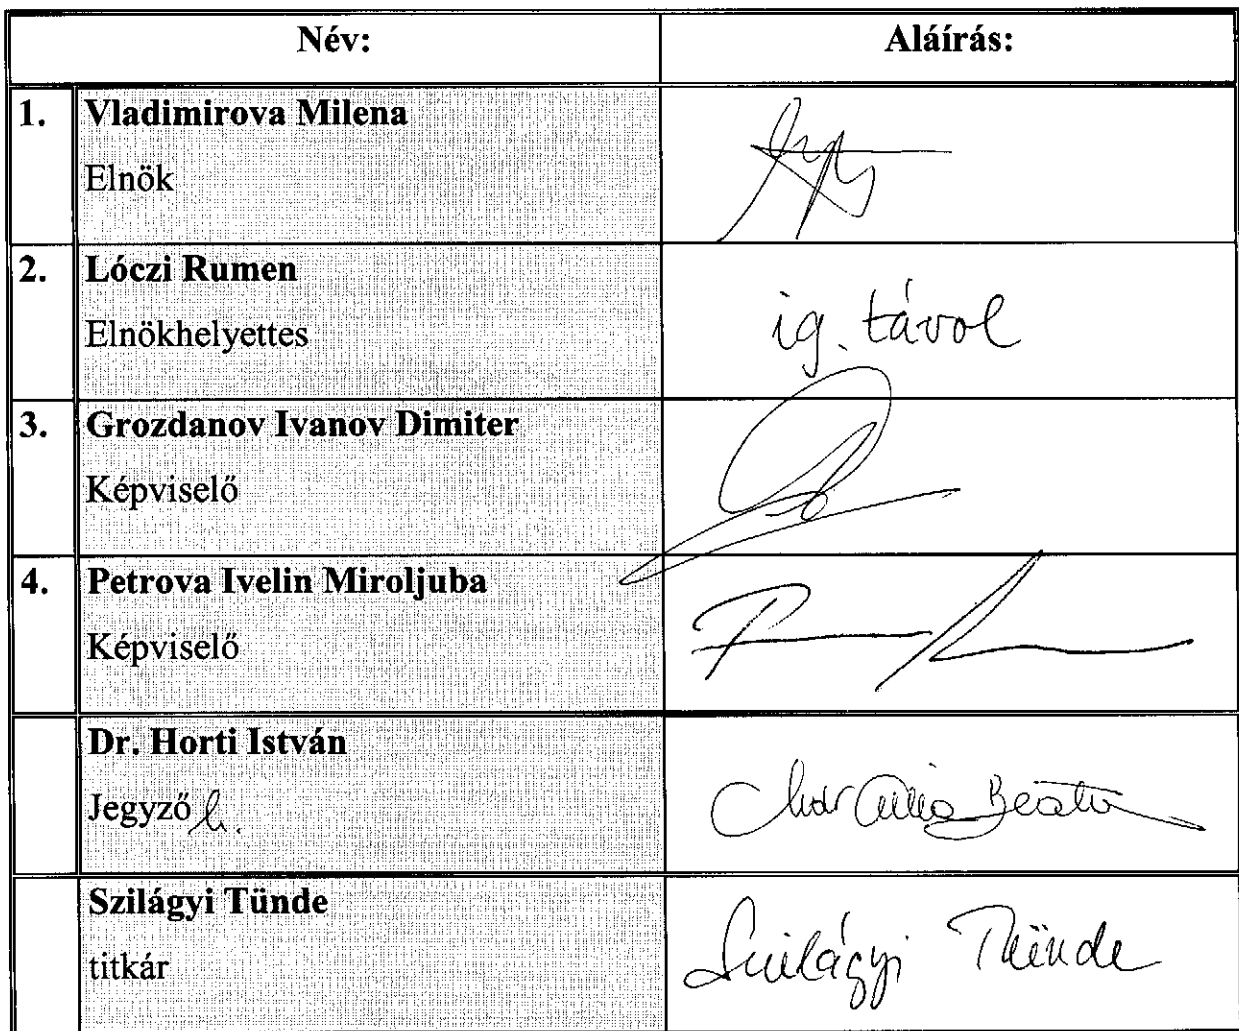 Név: Aláírás:
1. Vladimirova Milena
Elnök
2. Lóczi Rumen
Elnökhelyettes
ig. távol
3. Grozdanov Ivanov Dimiter
Képviselő
4. Petrova Ivelin Miroljuba
Képviselő
Dr. Horti István
Jegyző h.
Beáta
Szilágyi Tünde
titkár
Szilágyi Tünde